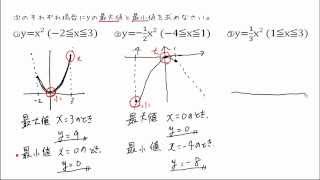 次のそれぞれ場合にyの最大値と最小値を求めなさい。
①y=x² (−2≦x≦3) ②y=−1/2x² (−4≦x≦1) ③y=1/3x² (1≦x≦3)
-2 3
-4 1
最大値 x=3のとき、 最大値 x=0のとき、
y=9 y=0
最小値 x=0のとき、 最小値 x=-4のとき
y=0 y=-8